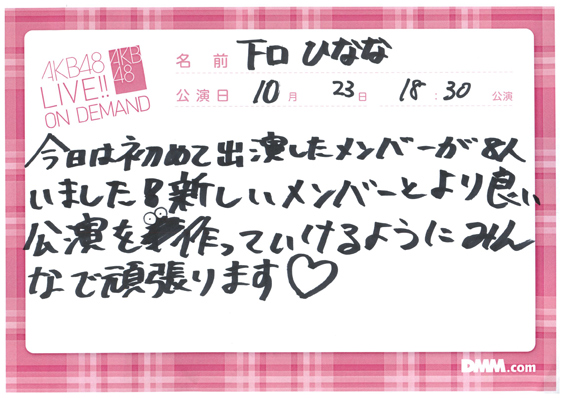 AKB48
LIVE!!
ON DEMAND
AKB
48
名前 下口 ひなな
公演日 10月 23日 18:30 公演
今日は初めて出演したメンバーが8人
いました!新しいメンバーとより良い
公演を作っていけるようにみん
なで頑張ります♡
DMM.com